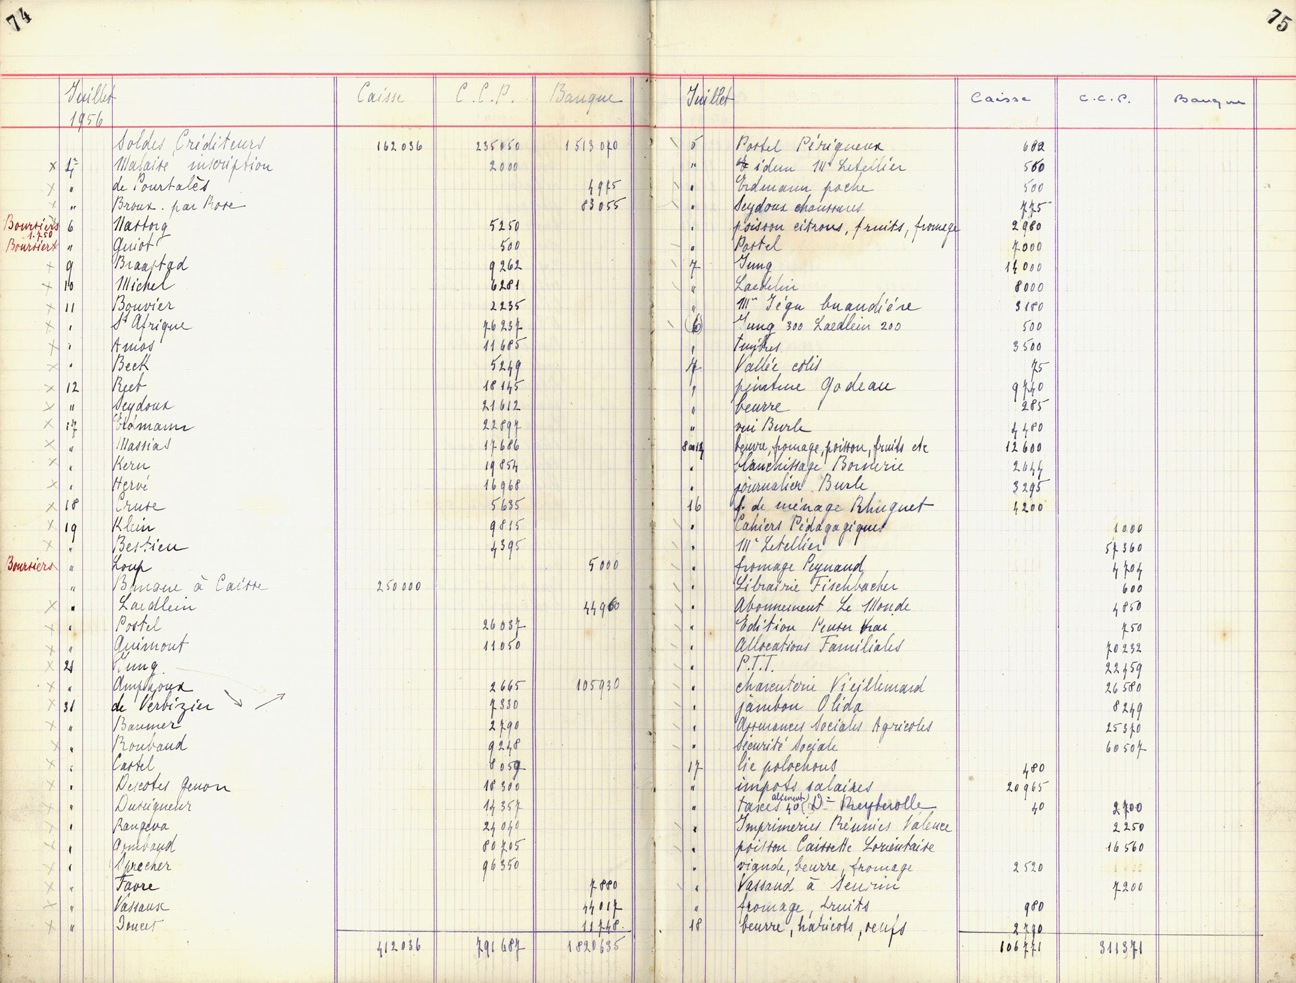 74
Juillet 1956 Caisse C.C.P. Banque
Soldes Créditeurs 162036 235050 1513070
x 1er Malaise inscription 2000
x " de Pourtalès 4975
x " Broux. par Rose 83055
Boursiers 6 Nattorg 5250
1.750
Boursiers " Guiot 500
x 9 Braastad 9262
x 10 Michel 6281
x 11 Bouvier 2235
x " St Afrique 76237
x " Amos 11685
x " Beck 5249
x 12 Reet 18145
x " Seydoux 21612
x 17 22897
x " Massias 17686
x " Kern 19854
x " Hervé 16968
x 18 Cruse 5635
x 19 Klein 9815
x " Bestieu 4395
Boursiers " Loup 5000
" Banque à Caisse 250000
x " Laedlein 44960
x " Postel 26037
x " Guimont 11050
x 21 Jung
x " Ampojoux 2665 105930
x 31 de Verbizier 7330
x " Baumer 2790
x " Roubaud 9248
x " Castel 8059
x " Descotes Genon 18300
x " Dusigneur 14357
x " Rangeva 24040
x " Combaud 80705
x " Sprecher 96350
x " Favre 7880
x " Vassaux 44017
x " Doucet 11748
412036 791687 1820635
75
Juillet Caisse C.C.P. Banque
5 Postel Périgueux 682
" idem Mr Letellier 560
" Erdmann poche 500
" Seydoux chaussures 775
" poisson citrons, fruits, fromage 2980
" Postel 7000
7 Jung 14000
" Laedlein 8000
" Mme Jégu buandière 3180
(6) Jung 300 Laedlein 200 500
" timbres 3500
7 Vallée colis 75
" peinture Godeau 9740
" beurre 285
" vin Burle 4480
8 au 14 beurre, fromage, poisson, fruits etc 12600
" blanchissage Bonnerie 2644
" journalier Burle 3295
16 f. de ménage Rhuguet 4200
" Cahiers Pédagogiques 1000
" Mr Letellier 57360
" fromage Peynaud 4704
" Librairie Fischbacher 600
" Abonnement Le Monde 4850
" Edition Penser Vrai 750
" Allocations Familiales 70232
" P.T.T. 22459
" charcuterie Vieillemard 26580
" jambon Olida 8249
" Assurances Sociales Agricoles 25370
" Sécurité Sociale 60507
17 lie polochons 480
" impots salaires 20965
" taxes 40 (allement) Dr Puyberolle 40 2700
" Imprimeries Réunies Valence 2250
" poisson Caissette Lorientaise 16560
" viande, beurre, fromage 2520
" Vassaud à Seurin 7200
" fromage, fruits 980
18 beurre, haricots, oeufs 2790
106771 311371